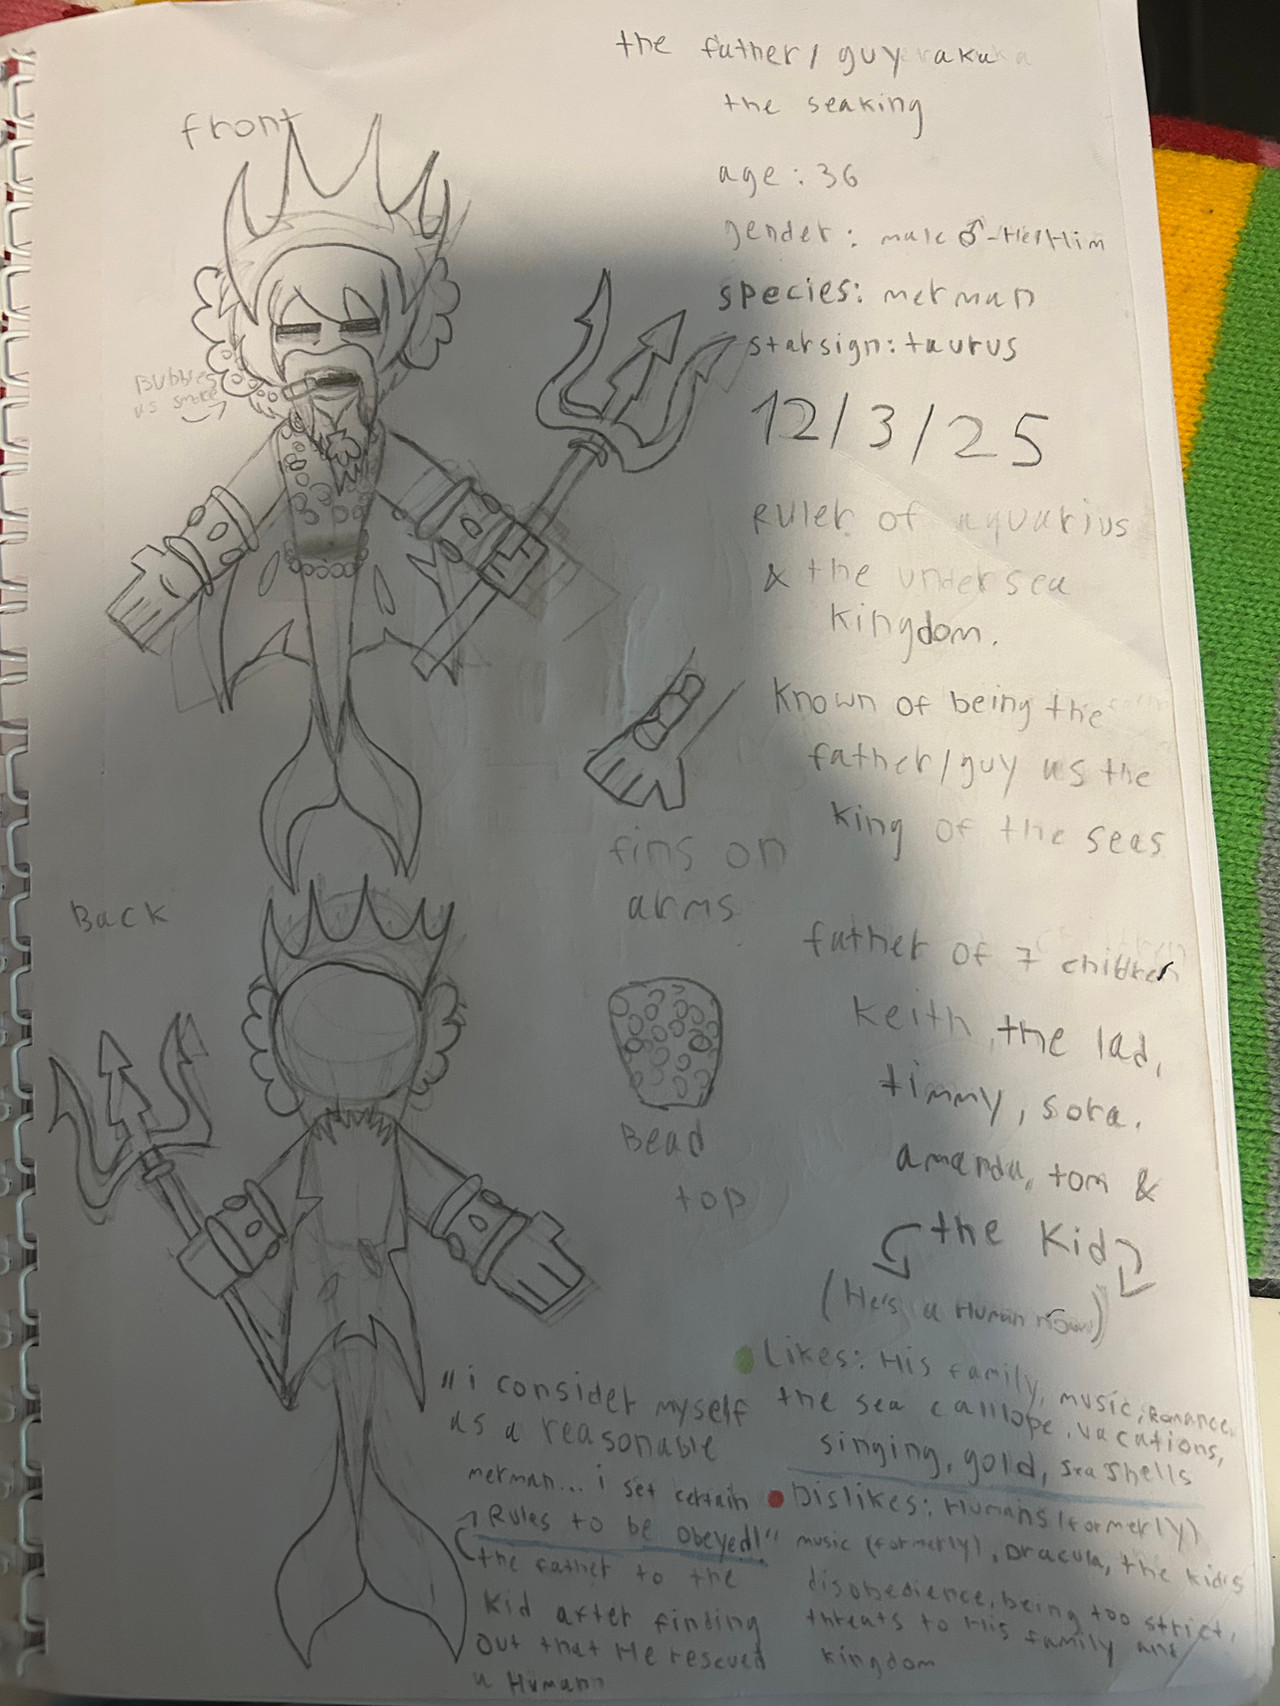 the father/ guy rakuka
the seaking
front
age: 36
gender: male ♂-He/Him
species: merman
starsign: taurus
Bubbles
as smoke
12/3/25
Ruler of aquarius
& the under sea
kingdom.
Known of being the
father/guy as the
king of the seas
fins on
arms
Back
father of 7 children
Keith, the lad,
timmy, sora.
amanda, tom &
the Kid
(He's a Human now)
Bead
top
Likes: His family, music, Romance,
the sea calliope, vacations,
singing, gold, sea shells
Dislikes: Humans (formerly)
music (formerly), Dracula, the kid's
disobedience, being too strict,
threats to His family and
kingdom
"i consider myself
as a reasonable
merman... i set certain
Rules to be obeyed!"
the father to the
Kid after finding
out that He rescued
a Human